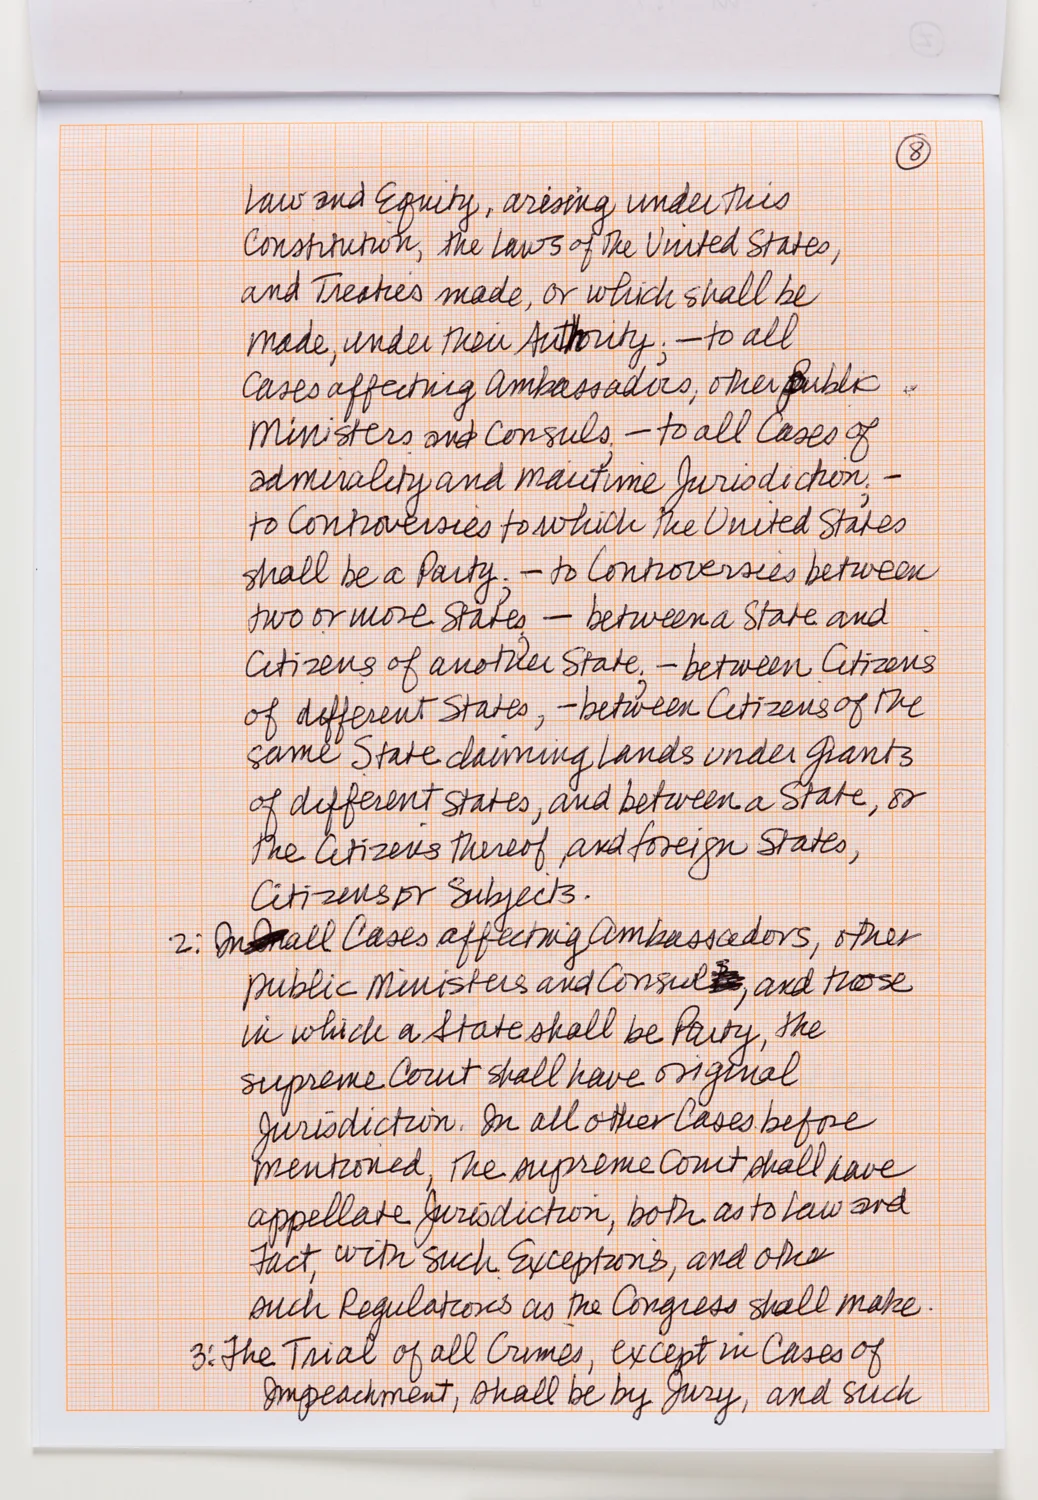 8
Law and Equity, arising under this
Constitution, the Laws of the United States,
and Treaties made, or which shall be
made, under their Authority; — to all
Cases affecting Ambassadors, other public
Ministers and Consuls; — to all Cases of
admirality and maritime Jurisdiction; —
to Controversies to which the United States
shall be a Party; — to Controversies between
two or more States; — between a State and
Citizens of another State; — between Citizens
of different States, — between Citizens of the
same State claiming Lands under Grants
of different States, and between a State, or
the Citizens thereof, and foreign States,
Citizens or Subjects.
2: In all Cases affecting Ambassadors, other
public Ministers and Consuls, and those
in which a State shall be Party, the
supreme Court shall have original
Jurisdiction. In all other Cases before
mentioned, the supreme Court shall have
appellate Jurisdiction, both as to Law and
Fact, with such Exceptions, and other
such Regulations as the Congress shall make.
3: The Trial of all Crimes, except in Cases of
Impeachment, shall be by Jury, and such